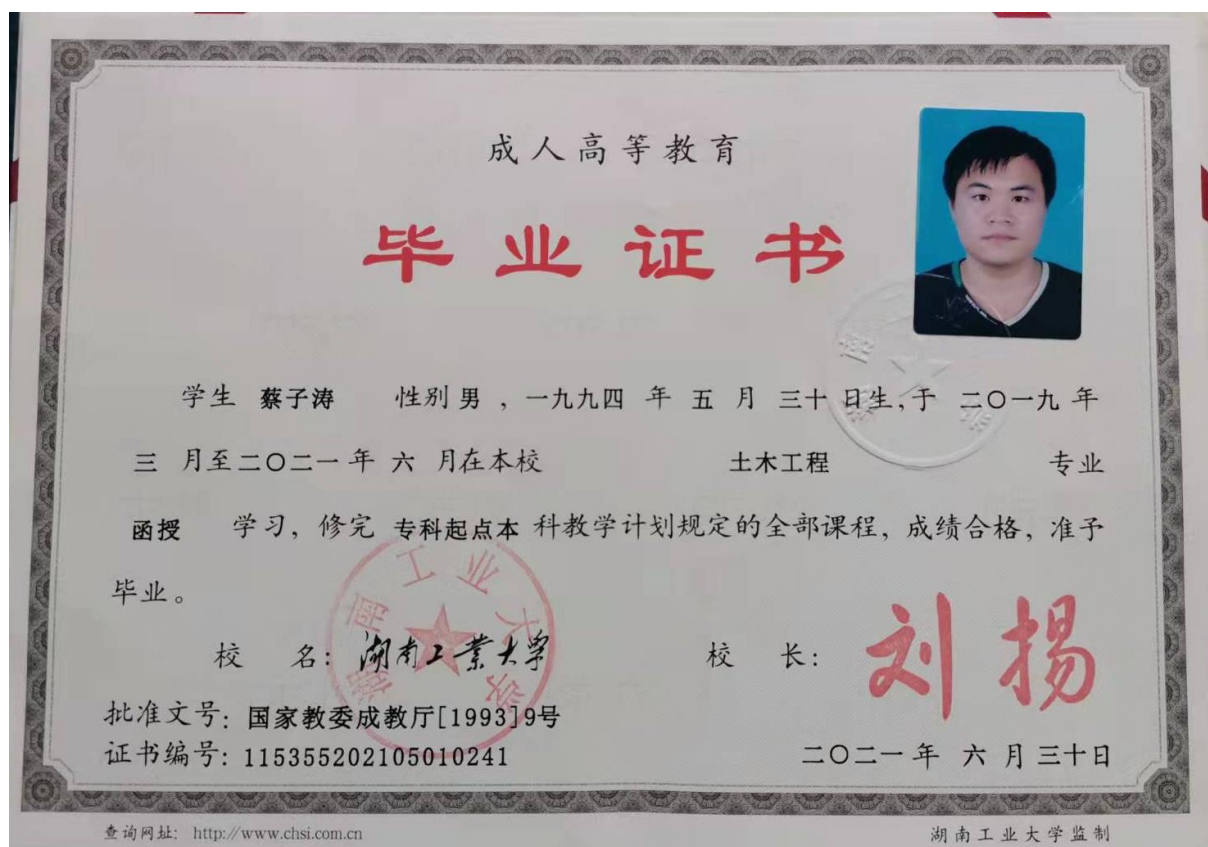 成人高等教育
毕业证书
学生 蔡子涛 性别 男 , 一九九四 年 五 月 三十 日生,于 二〇一九 年
三 月至二〇二一年 六 月在本校 土木工程 专业
函授 学习, 修完 专科起点本 科教学计划规定的全部课程, 成绩合格, 准予
毕业。
校 名: 湖南工業大学 校 长: 刘扬
湖南工业大学
批准文号: 国家教委成教厅[1993]9号
证书编号: 115355202105010241 二〇二一年 六 月 三十日
查询网址: http://www.chsi.com.cn 湖南工业大学监制